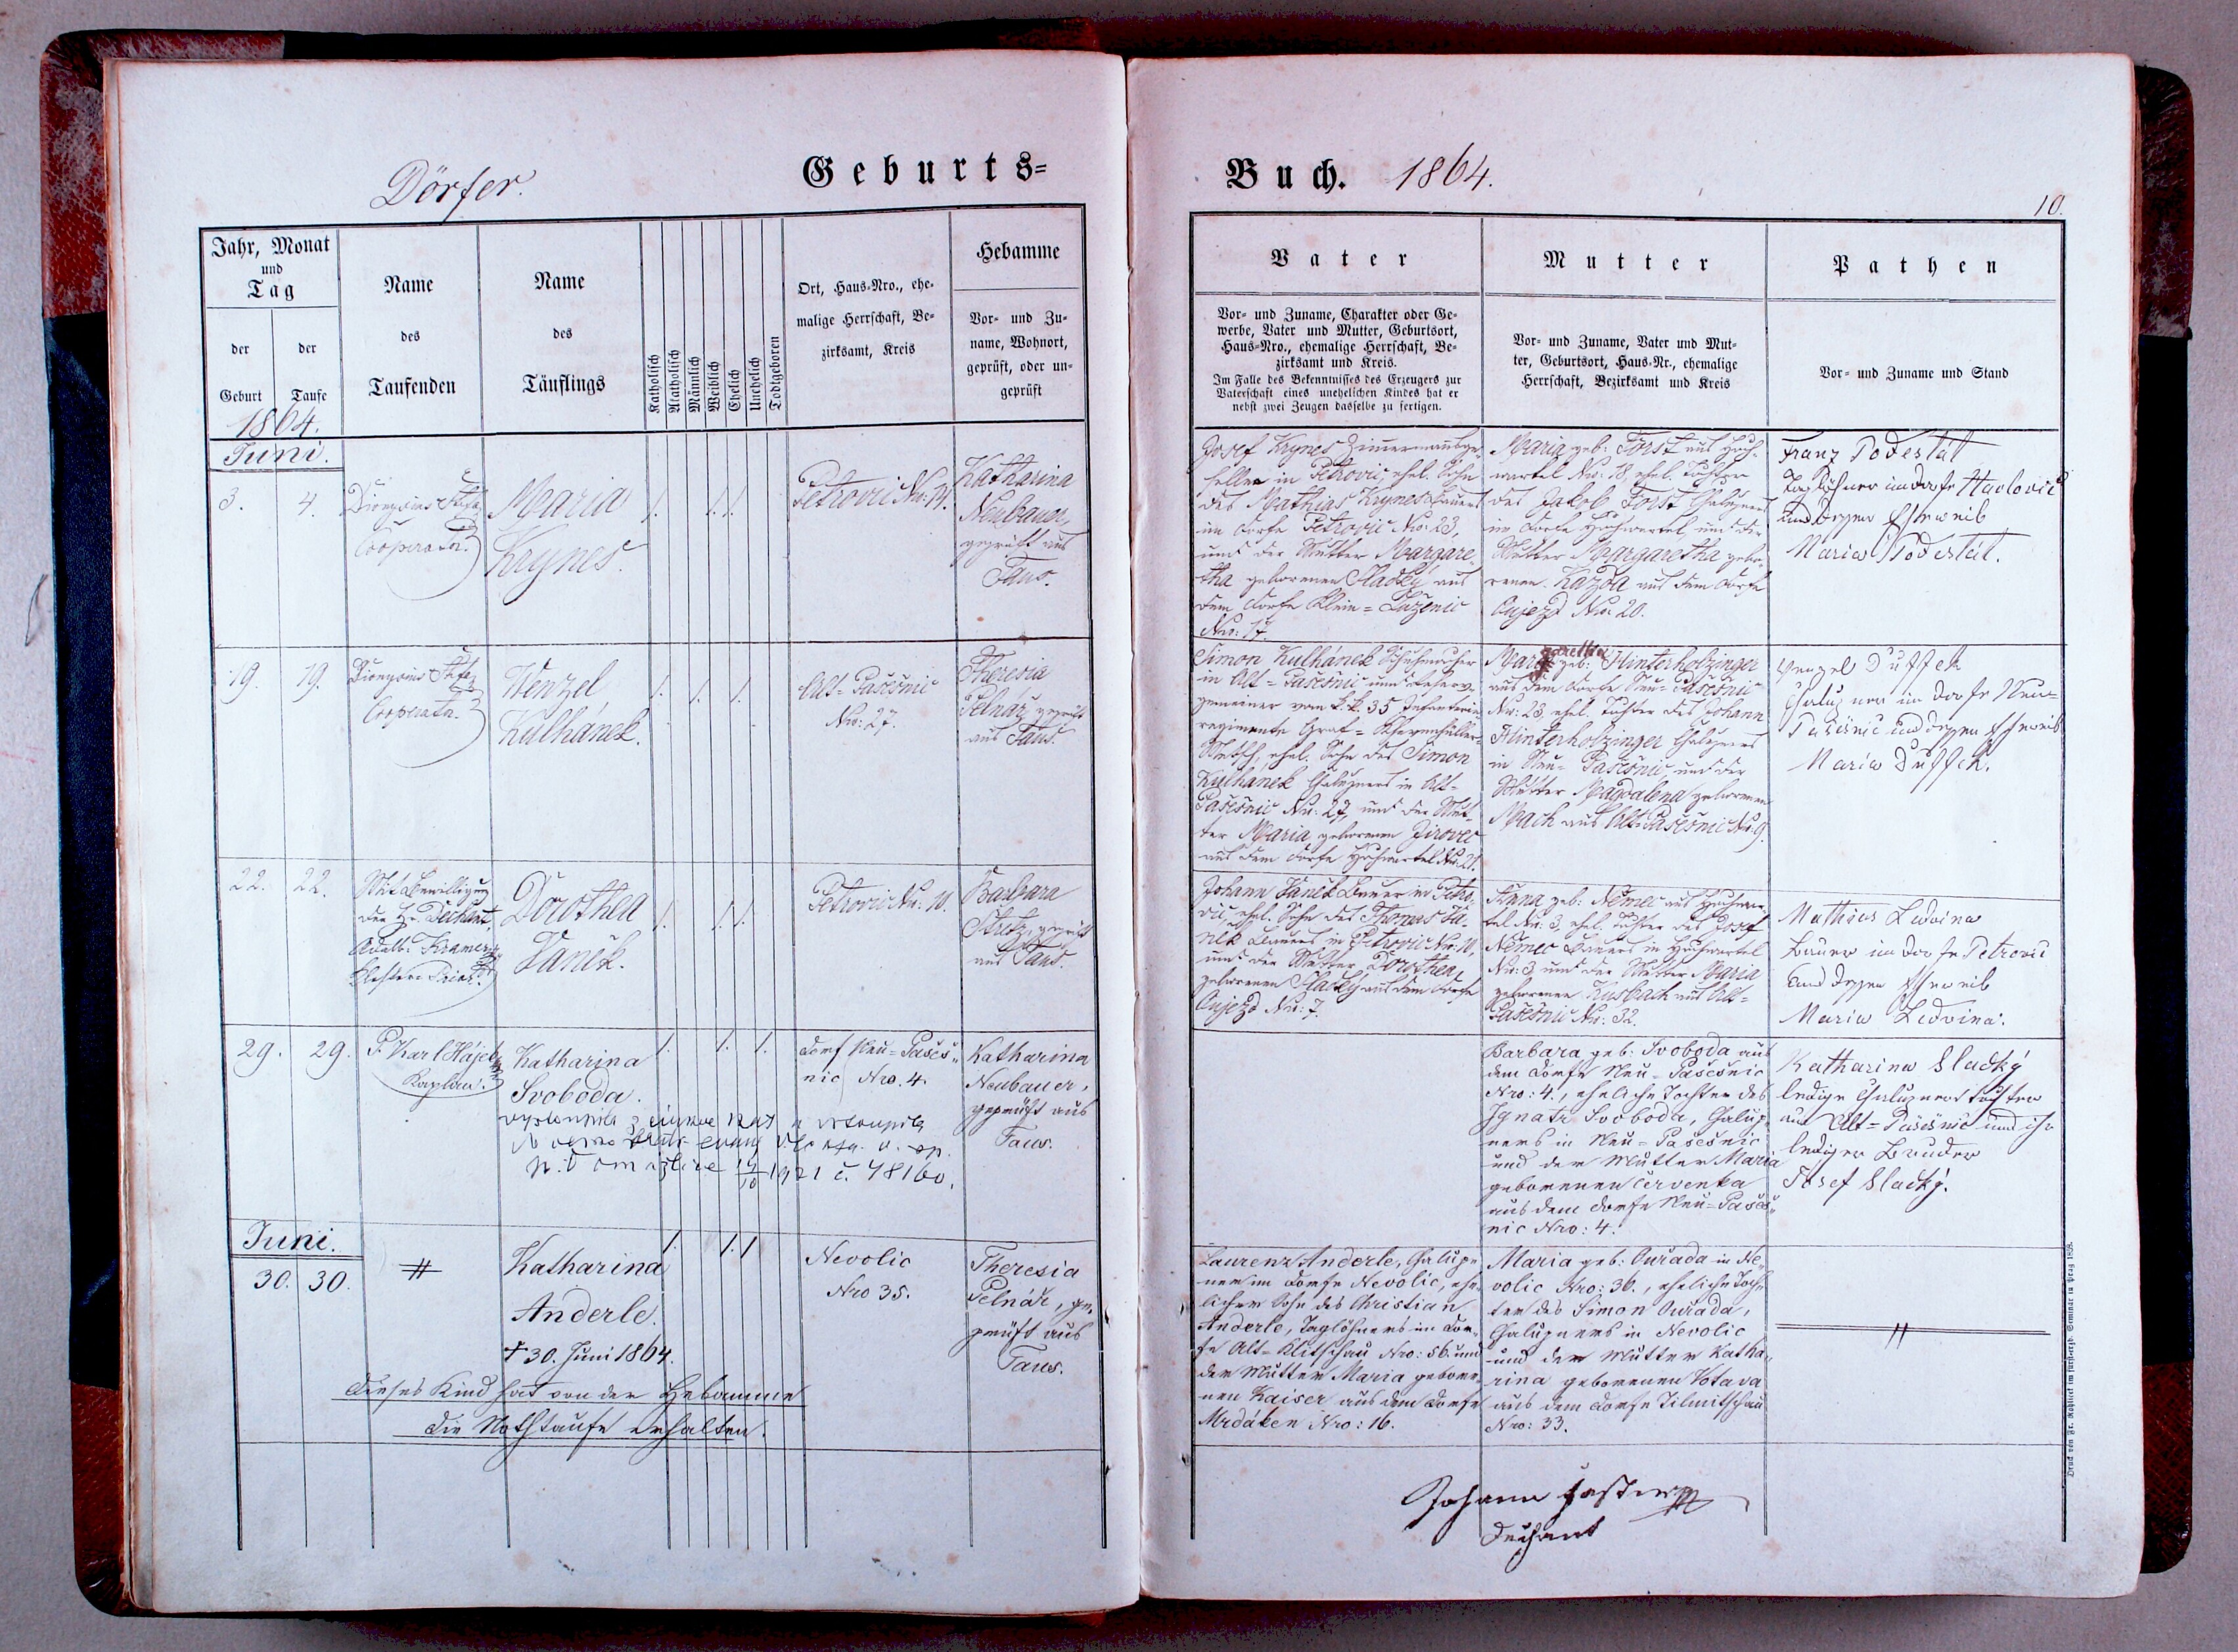 Dörfer.
Geburts-
Jahr, Monat
und
Tag
der
Geburt
der
Taufe
Name
des
Taufenden
Name
des
Täuflings
Katholisch
Akatholisch
Männlich
Weiblich
Ehelich
Unehelich
Todtgeboren
Ort, Haus-Nro., ehe-
malige Herrschaft, Be-
zirksamt, Kreis
Hebamme
Vor- und Zu-
name, Wohnort,
geprüft, oder un-
geprüft
1864.
Juni.
3. 4.
Dionysius
Cooperator.
Maria
Krynes.
1. 1. 1.
Petrovic Nro: 14.
Katharina
Neubauer,
geprüft aus
Taus.
19. 19.
Dionysius
Cooperator.
Wenzel
Kulhánek.
1. 1. 1.
Alt-Pasečnic
Nro: 27.
Theresia
Pelnář, geprüft
aus Taus.
22. 22.
Mit Bewilligung
des Hr. Dechant,
Adalb: Kramer
Dorothea
Vaněk.
1. 1. 1.
Petrovic Nro: 10.
Barbara
geprüft
aus Taus.
29. 29.
P. Karl Hájek
Kaplan.
Katharina
Svoboda.
1. 1. 1.
Dorf Neu-Paseč-
nic Nro. 4.
Katharina
Neubauer,
geprüft aus
Taus.
vystoupila z církve kat. a vstoupila
1921 č. 48160.
Juni.
30. 30.
"
Katharina
Anderle.
† 30. Juni 1864.
1. 1. 1
Nevolic
Nro 35.
Theresia
Pelnář, ge-
prüft aus
Taus.
Dieses Kind hat von der Hebamme
die Nothtaufe erhalten.
Buch. 1864.
10.
Vater
Vor- und Zuname, Charakter oder Ge-
werbe, Vater und Mutter, Geburtsort,
Haus-Nro., ehemalige Herrschaft, Be-
zirksamt und Kreis.
Im Falle des Bekenntnisses des Erzeugers zur
Vaterschaft eines unehelichen Kindes hat er
nebst zwei Zeugen dasselbe zu fertigen.
Mutter
Vor- und Zuname, Vater und Mut-
ter, Geburtsort, Haus-Nr., ehemalige
Herrschaft, Bezirksamt und Kreis
Pathen
Vor- und Zuname und Stand
Josef Krynes Zimmermannsge-
selle in Petrovic, ehel. Sohn
des Mathias Krynes Bauers
im Dorfe Petrovic Nro: 23,
und der Mutter Margare-
tha geborenen Sladký aus
dem Dorfe Klein-Luženic
Nro: 17.
Maria geb: Forst aus Hoch-
wartel Nro: 18, ehel. Tochter
des Jakob Forst Chalupners
im Dorfe Hochwartel, und der
Mutter Margaretha gebo-
renen Kazda aus dem Dorfe
Aujezd Nro: 20.
Franz Podestát
Taglöhner im Dorfe Havlovic
und dessen Eheweib
Maria Podestát.
Simon Kulhánek Schuhmacher
in Alt-Pasečnic und Reserv-
gemeiner vom k. k. 35 Infanterie-
regimente Graf-Khevenhüller-
Metsch, ehel. Sohn des Simon
Kulhánek Chalupners in Alt-
Pasečnic Nro: 27, und der Mut-
ter Maria geborenen Jirovec
aus dem Dorfe Hochwartel Nro: 21.
Margaretha geb: Hinterholzinger
aus dem Dorfe Neu-Pasečnic
Nro: 23, ehel. Tochter des Johann
Hinterholzinger Chalupners
in Neu-Pasečnic, und der
Mutter Magdalena geborenen
Mach aus Alt-Pasečnic Nro: 9.
Wenzel Duffek
Chalupner im Dorfe Neu-
Pasečnic und dessen Eheweib
Maria Duffek.
Johann Vaněk Bauer in Petro-
vic, ehel. Sohn des Thomas Va-
něk Bauers in Petrovic Nro: 10,
und der Mutter Dorothea,
geborenen Sladký aus dem Dorfe
Aujezd Nro: 7.
Anna geb: Němec aus Hochwar-
tel Nro: 3, ehel. Tochter des Josef
Němec Bauers in Hochwartel
Nro: 3, und der Mutter Maria
geborenen Kusbach aus Alt-
Pasečnic Nro: 32.
Mathias Ledvina
Bauer im Dorfe Petrovic
und dessen Eheweib
Maria Ledvina.
Barbara geb: Svoboda aus
dem Dorfe Neu-Pasečnic
Nro: 4., eheliche Tochter des
Ignatz Svoboda, Chalup-
ners in Neu-Pasečnic
und der Mutter Maria
geborenen Červenka
aus dem Dorfe Neu-Paseč-
nic Nro: 4.
Katharina Sladký
ledige Chalupnerstochter
aus Alt-Pasečnic und ihr
lediger Bruder
Josef Sladký.
Laurenz Anderle, Chalup-
ner im Dorfe Nevolic, ehe-
licher Sohn des Christian
Anderle, Taglöhners im Dor-
fe Alt-Klitschau Nro: 56. und
der Mutter Maria gebore-
nen Kaiser aus dem Dorfe
Mrdáken Nro: 16.
Maria geb: Ouřada in Ne-
volic Nro: 36., eheliche Toch-
ter des Simon Ouřada,
Chalupners in Nevolic
und der Mutter Katha-
rina geborenen Votava
aus dem Dorfe Tilmitschau
Nro: 33.
"
Johann
Dechant
Druck von Fr. Rohliček im fürsterzb. Seminär in Prag 1859.